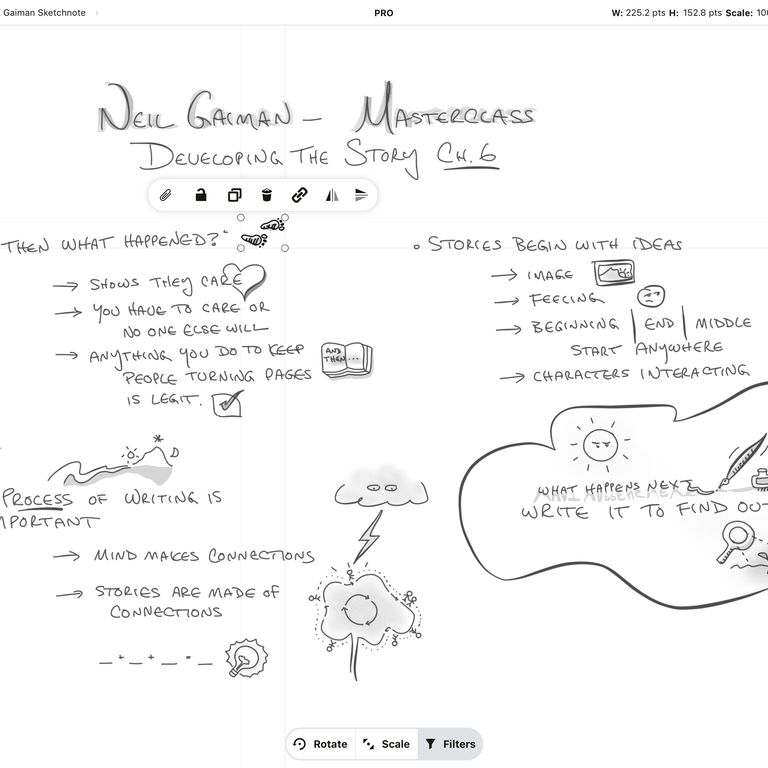 Gaiman Sketchnote
PRO
W: 225.2 pts H: 152.8 pts Scale: 100
NEIL GAIMAN – MASTERCLASS
DEVELOPING THE STORY CH. 6
THEN WHAT HAPPENED?"
→ SHOWS THEY CARE
→ YOU HAVE TO CARE OR
NO ONE ELSE WILL
→ ANYTHING YOU DO TO KEEP
PEOPLE TURNING PAGES
IS LEGIT.
AND
THEN...
PROCESS OF WRITING IS
MPORTANT
→ MIND MAKES CONNECTIONS
→ STORIES ARE MADE OF
CONNECTIONS
• STORIES BEGIN WITH IDEAS
→ IMAGE
→ FEELING
→ BEGINNING | END | MIDDLE
START ANYWHERE
→ CHARACTERS INTERACTING
WHAT HAPPENS NEXT
WRITE IT TO FIND OUT
Rotate
Scale
Filters